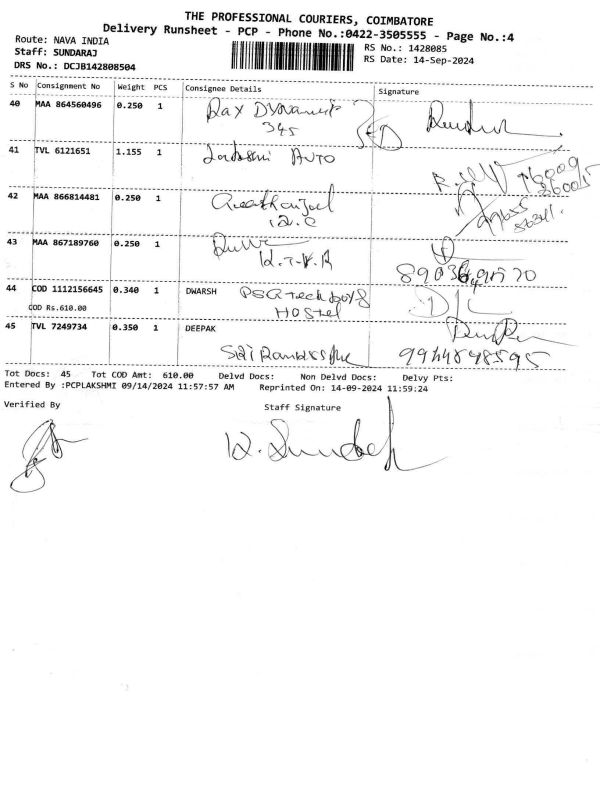 THE PROFESSIONAL COURIERS, COIMBATORE
Delivery Runsheet - PCP - Phone No.:0422-3505555 - Page No.:4
Route: NAVA INDIA
Staff: SUNDARAJ
DRS No.: DCJB142808504
RS No.: 1428085
RS Date: 14-Sep-2024
S No Consignment No Weight PCS Consignee Details Signature
40 MAA 864560496 0.250 1
345
41 TVL 6121651 1.155 1 AUTO
42 MAA 866814481 0.250 1
43 MAA 867189760 0.250 1
K.T.V.R
44 COD 1112156645 0.340 1 DWARSH PSG Tech boys
COD Rs.610.00 HOSTEL
D/L
45 TVL 7249734 0.350 1 DEEPAK
9944848595
Tot Docs: 45 Tot COD Amt: 610.00 Delvd Docs: Non Delvd Docs: Delvy Pts:
Entered By :PCPLAKSHMI 09/14/2024 11:57:57 AM Reprinted On: 14-09-2024 11:59:24
Verified By Staff Signature